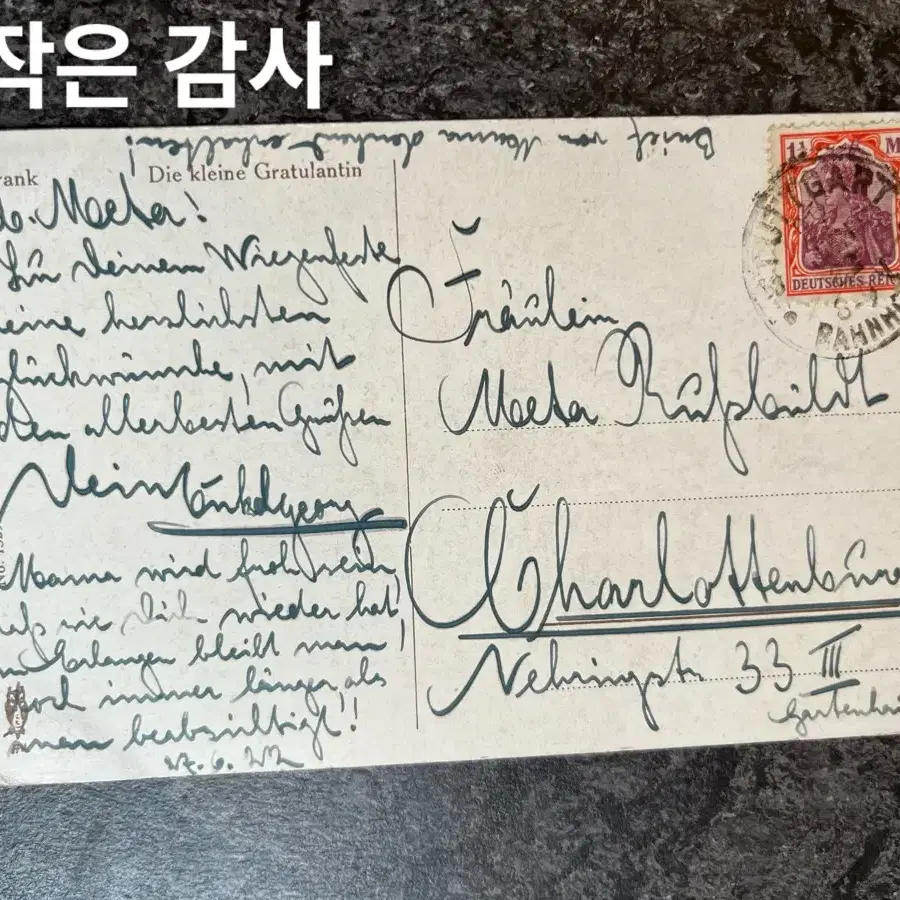 작은 감사
Brief von Mama dankend erhalten!
rank
Die kleine Gratulantin
Meta!
Zu Deinem Wiegenfeste
meine herzlichsten
Glückwünsche, mit
den allerbesten Grüßen
Dein Onkel Georg
Mama wird froh sein,
daß sie Dich wieder hat,
in Erlangen bleibt man
doch immer länger, als
man beabsichtigt!
Fräulein
Meta
Charlottenbur
Nehringstr 33 III
Gartenha
1¼ M
DEUTSCHES REI
STUTTGART
BAHNH